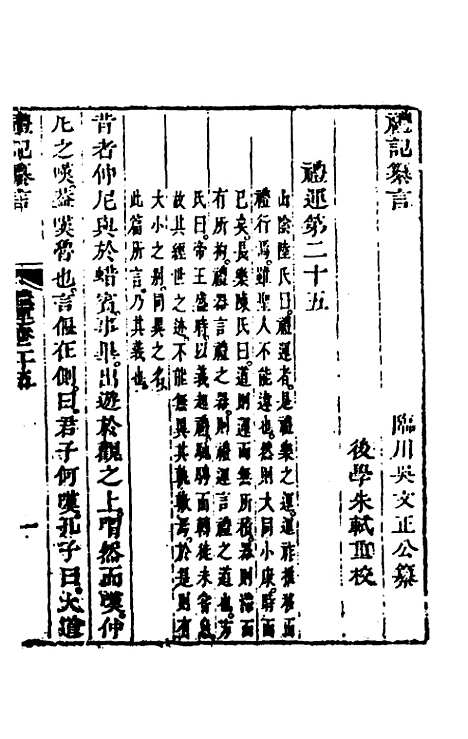 禮記纂言
臨川吳文正公纂
後學朱軾重校
禮運第二十五
山陰陸氏曰禮運者是禮樂之運運祚推移而
禮行焉雖聖人不能違也然則大同小康時而
已矣長樂陳氏曰道則運而無所積器則滯而
有所拘禮器言禮之器則禮運言禮之道也方
氏曰帝王盛時以義起禮馳騁而轉徙未嘗息
故其經世之迹不能無異其軌轍焉於是則有
大小之別同異之名
此篇所言乃其義也
昔者仲尼與於蜡賓事畢出遊於觀之上喟然而嘆仲
尼之嘆蓋嘆魯也言偃在側曰君子何嘆孔子曰大道
禮記纂言
二十五
一